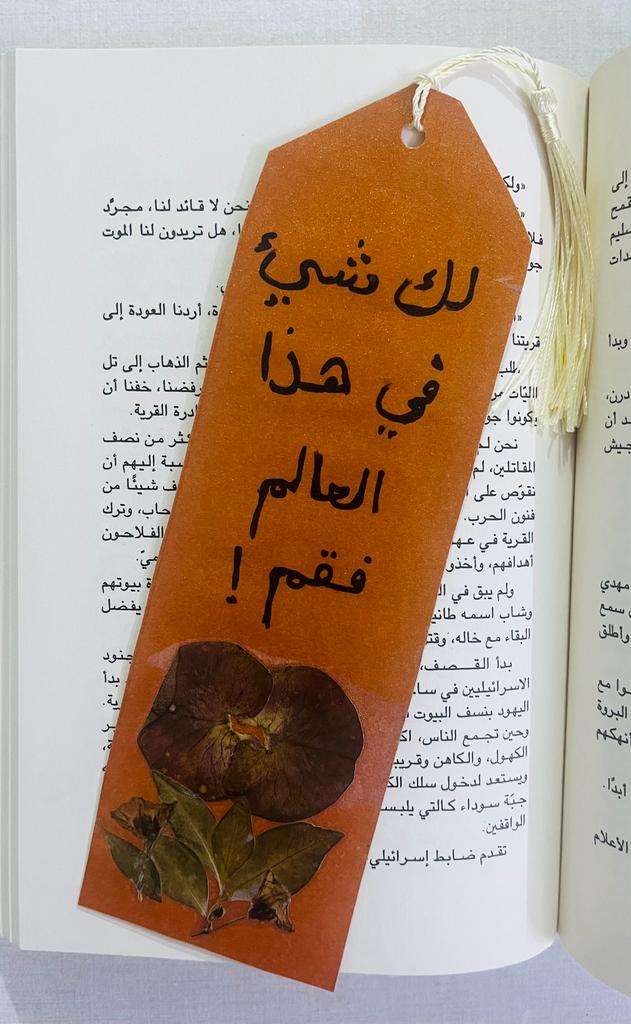 لك شيئ
في هذا
العالم
فقم !
«ولك
نحن لا قائد لنا، مجرّد
هل تريدون لنا الموت
أردنا العودة إلى
قريتنا
ثم الذهاب إلى تل
رفضنا، خفنا أن
وكونوا
ادرة القرية.
نحن لم
كثر من نصف
المقاتلين، لم
سبة إليهم أن
نقوّص على
ف شيئًا من
فنون الحرب.
حاب، وترك
القرية في
الفلاحون
أهدافهم، وأخذو
ولم يبق في
ة بيوتهم
وشاب اسمه طانيو
يفضل
البقاء مع خاله، وقتل
بدأ القـصـف،
جنود
الاسرائيليين في ساح
بدأ
اليهود بنسف البيوت
وحين تجمع الناس،
الكهول، والكاهن وقريبه
ويستعد لدخول سلك الك
جبّة سوداء كالتي يلبس
الواقفين.
تقدم ضابط إسرائيلي
إلى
قمح
سليم
وبدأ
درن،
أن
جيش
مهدي
سمع
وأطلق
وا مع
البروة
أنهكهم
أبدًا.
الأعلام